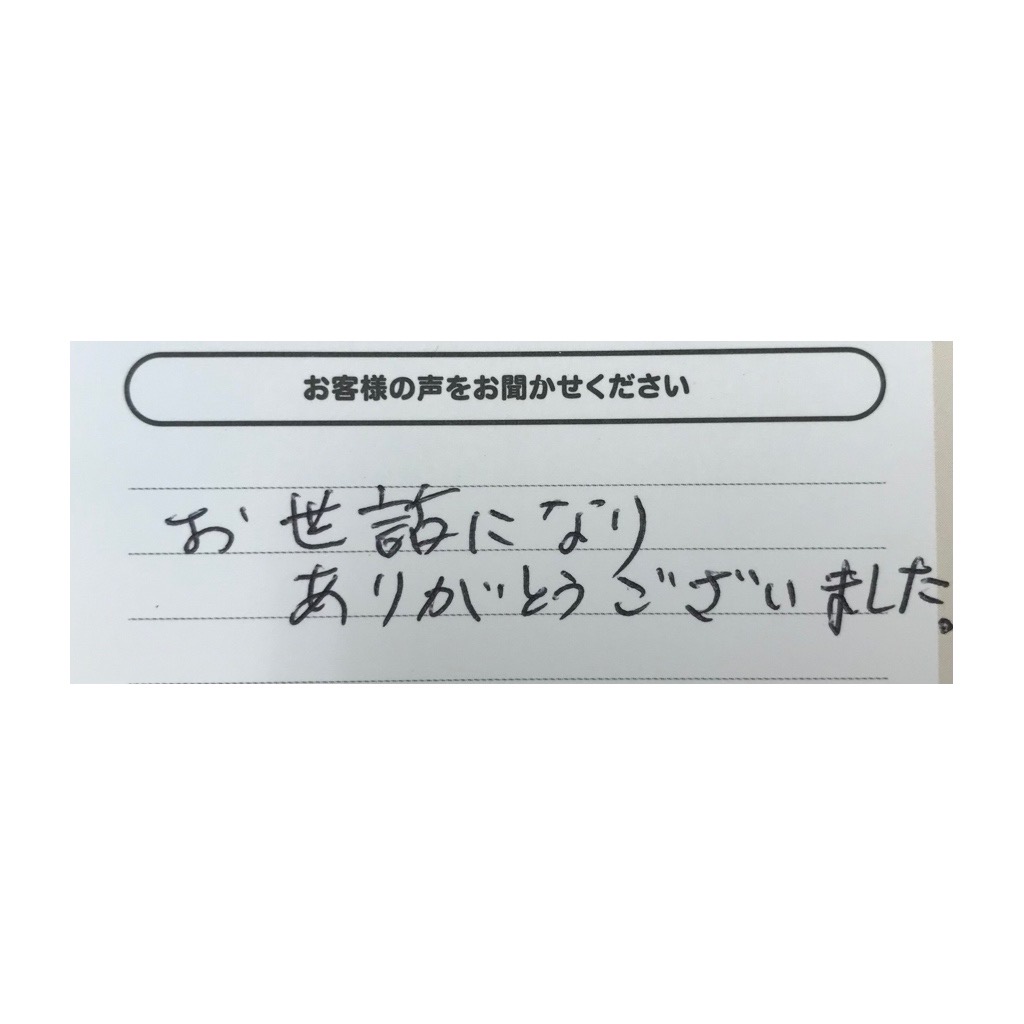 お客様の声をお聞かせください
お世話になり
ありがとうございました。